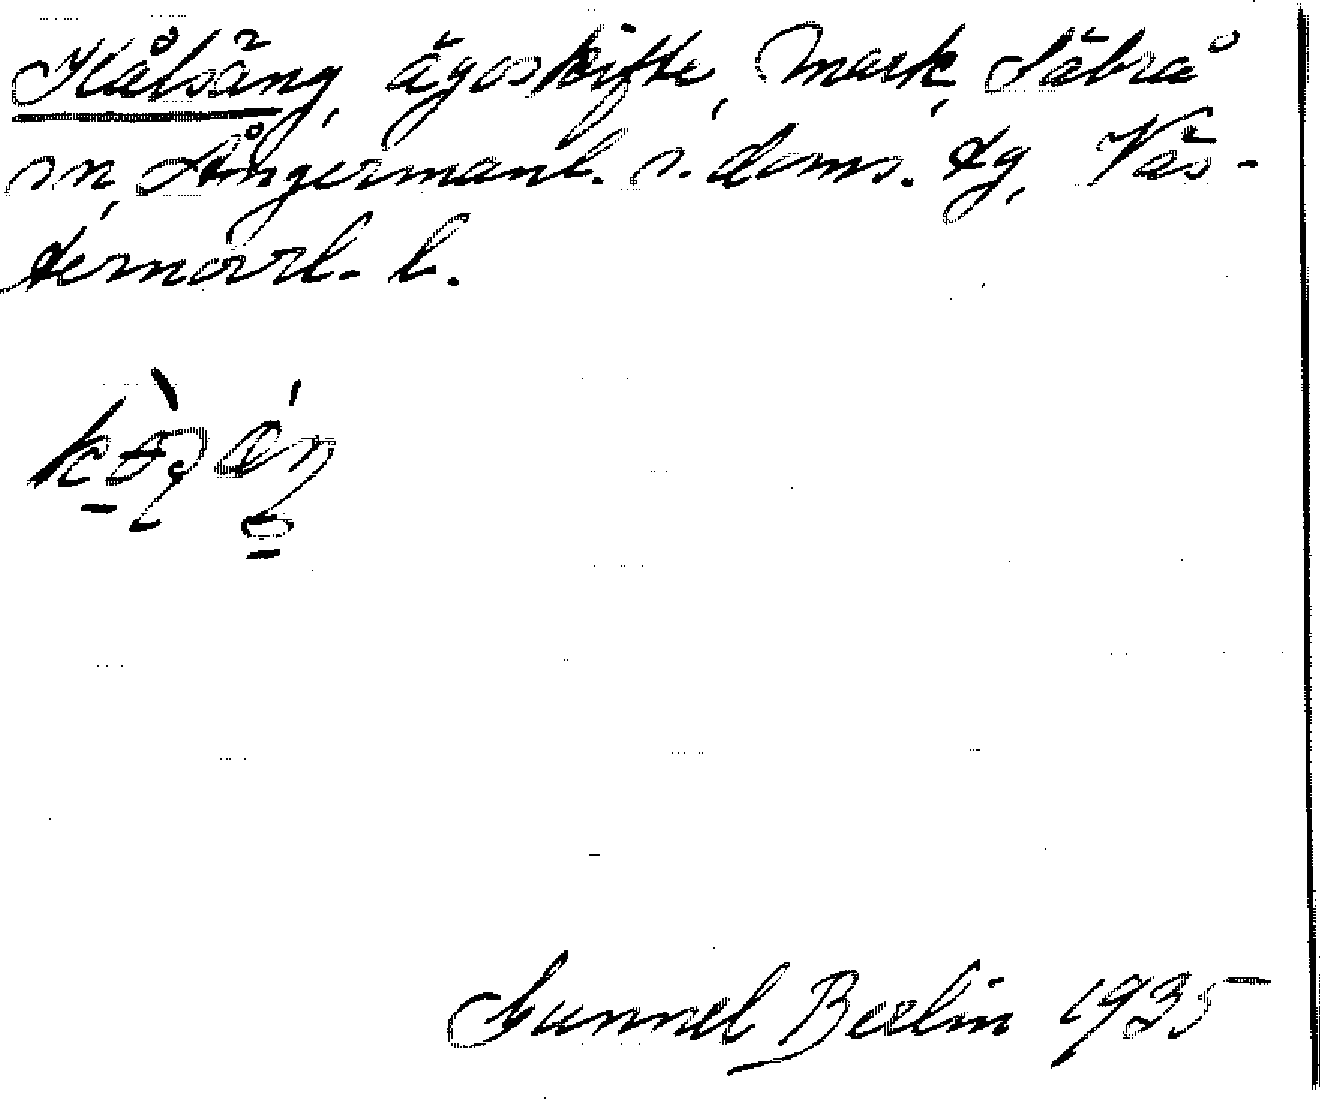 Kålsäng, ägoskifte, Mark, Säbrå
sn, Ångermanl. s. doms. tg, Väs-
ternorrl. l.
Gunnel Berlin 1935